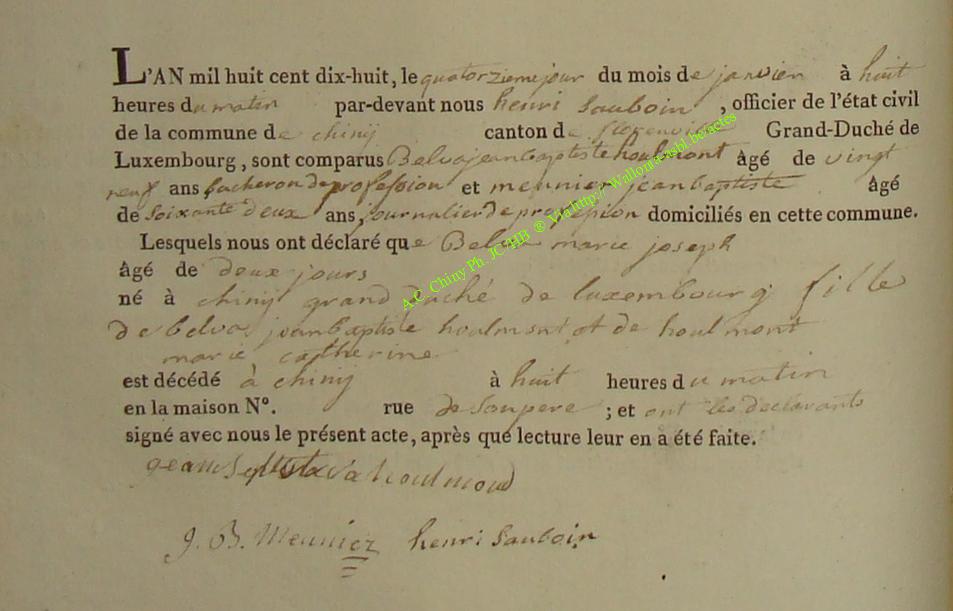 L'AN mil huit cent dix-huit, le quatorzieme jour du mois de janvier à huit
heures du matin par-devant nous henri sauboin, officier de l'état civil
de la commune de chinij canton de florenville Grand-Duché de
Luxembourg, sont comparus Belva jean baptiste houlmont âgé de vingt
neuf ans bucheron de profession et meunier jean baptiste âgé
de soixante deux ans, journalier de profession domiciliés en cette commune.
Lesquels nous ont déclaré que Belva marie joseph
âgé de deux jours
né à chinij grand duché de luxembourg fille
de belva jean baptiste houlmont et de houlmont
marie catherine
est décédé à chinij à huit heures du matin
en la maison N°. rue de son pere ; et ont les declarants
signé avec nous le présent acte, après que lecture leur en a été faite.
houlmond
J. B. Meunier henri sauboin
A.C. Chiny Ph. JC HB ® Via http:// Wallonia asbl.be/actes